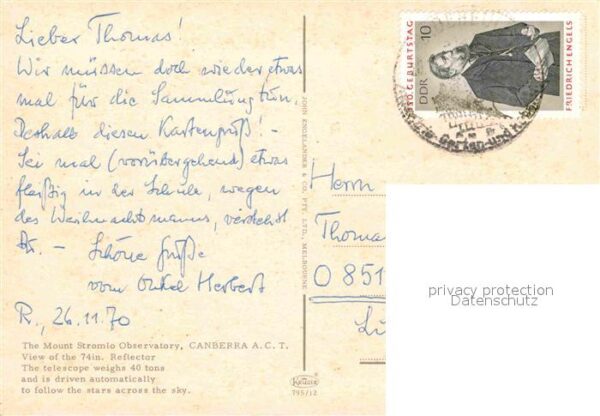 Lieber Thomas!
Wir müssen doch wieder etwas
mal für die Sammlung tun.
Deshalb diesen Kartengruß! -
Sei mal (vorübergehend) etwas
fleißig in der Schule, wegen
des Weihnachtsmanns, verstehst
Du. - Schöne Grüße
vom Onkel Herbert
R., 26.11.70
The Mount Stromlo Observatory, CANBERRA A.C.T.
View of the 74in. Reflector
The telescope weighs 40 tons
and is driven automatically
to follow the stars across the sky.
JOHN ENGELANDER & CO. PTY. LTD., MELBOURNE
KRUGER
795/12
150. GEBURTSTAG
DDR 10
FRIEDRICH ENGELS
Garten- und
Herrn
Thomas
O 851
privacy protection
Datenschutz